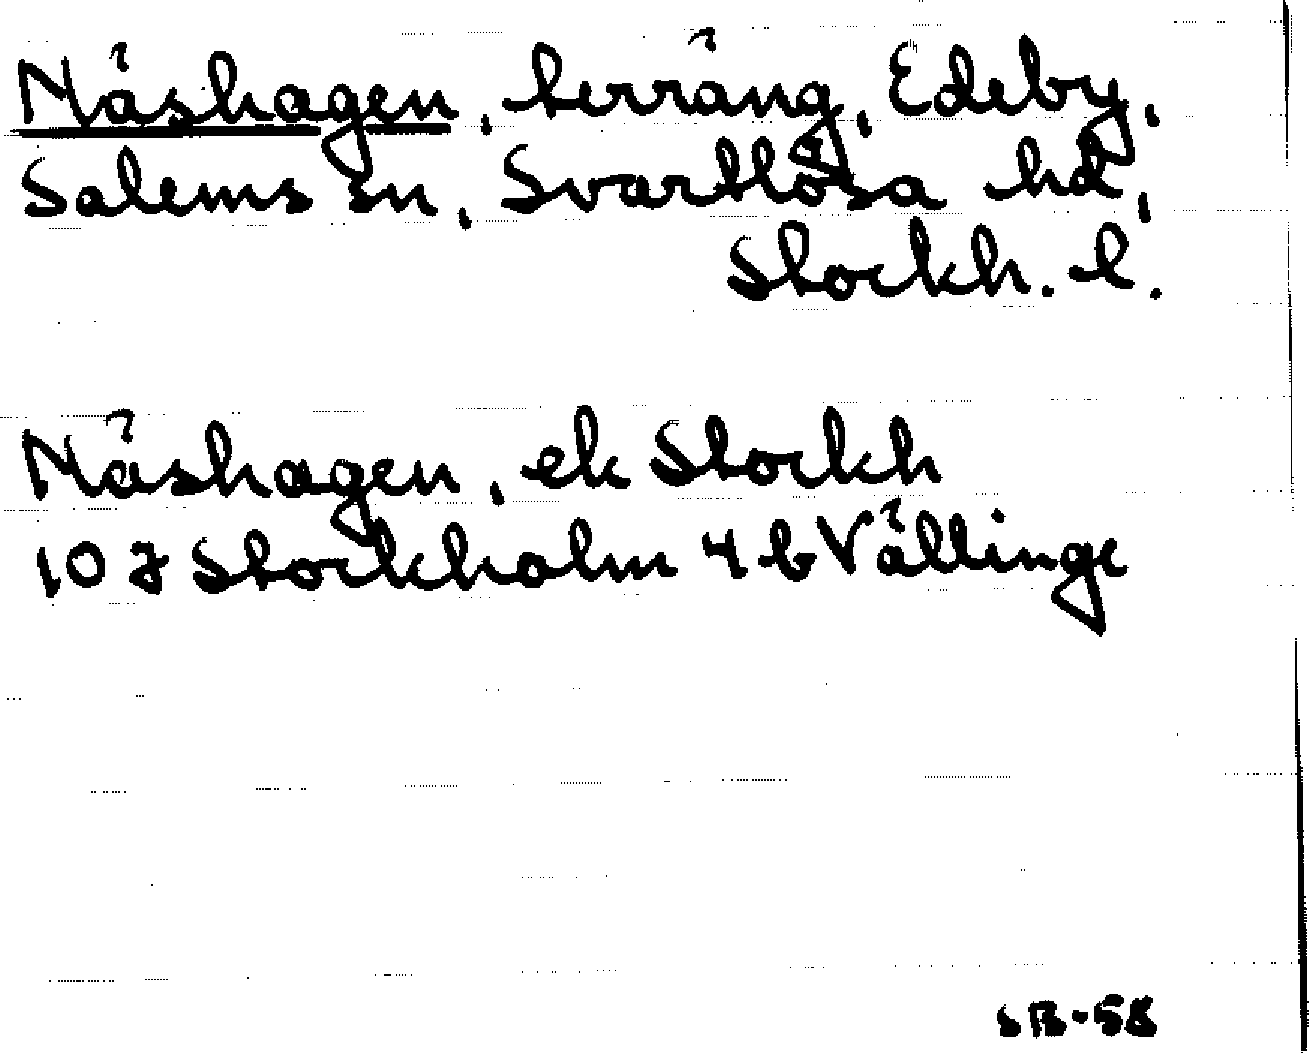 Näshagen, terräng, Edeby,
Salems sn, Svartlösa hd,
Stockh. l.
Näshagen, ek Stockh
10 J Stockholm 4 b Vällinge
SB-58